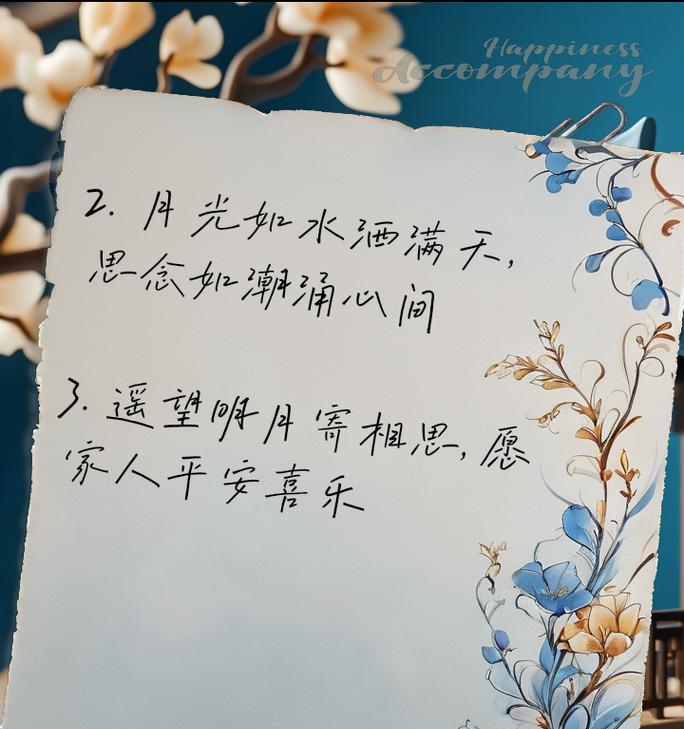 Happiness
Accompany
2. 月光如水洒满天,
思念如潮涌心间
3. 遥望明月寄相思, 愿
家人平安喜乐